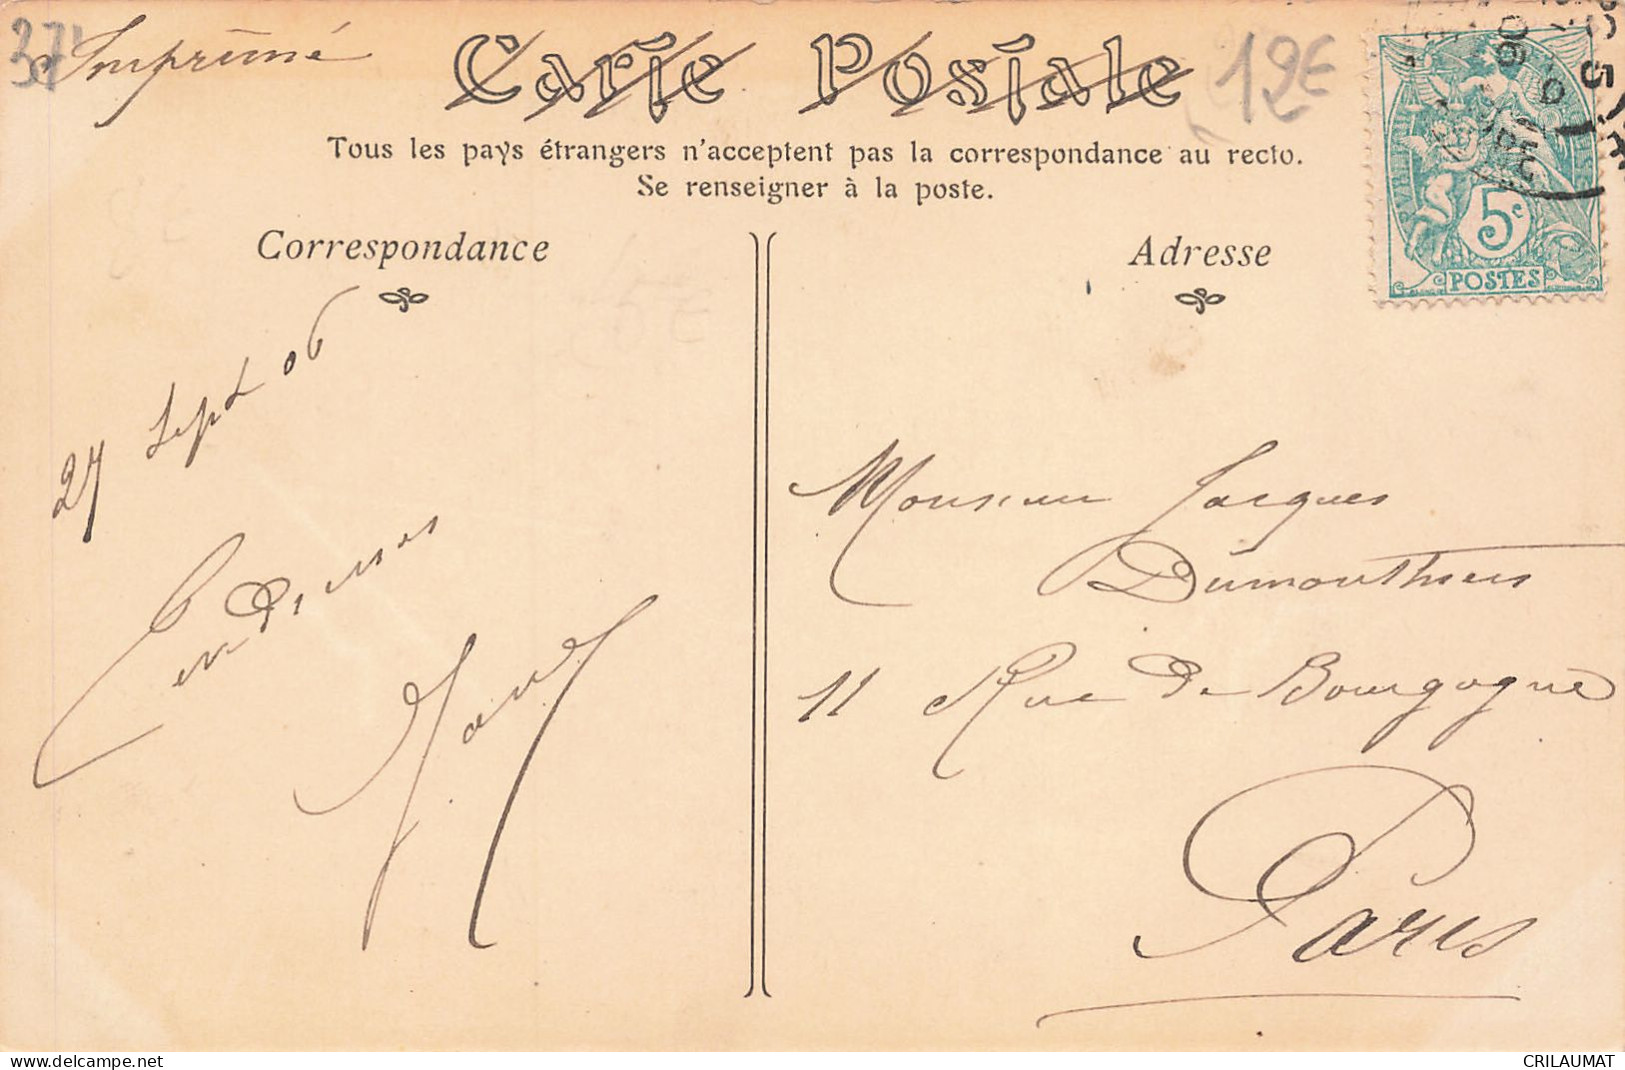 37
Imprimé
Carte Postale
12€
Tous les pays étrangers n'acceptent pas la correspondance au recto.
Se renseigner à la poste.
Correspondance
Adresse
5c
POSTES
06
27 Sept 06
Monsieur Jacques
Dumonthiers
11 Rue de Bourgogne
Paris
www.delcampe.net
CRILAUMAT